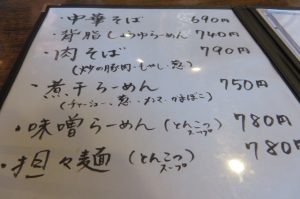 ・中華そば 690円
・背脂しょうゆらーめん 740円
・肉そば 790円
(炒め豚肉・もやし・葱)
・煮干らーめん 750円
(チャーシュー・葱・カマ・なまぼこ)
・味噌らーめん (とんこつスープ) 780円
・担々麺 (とんこつスープ) 780円